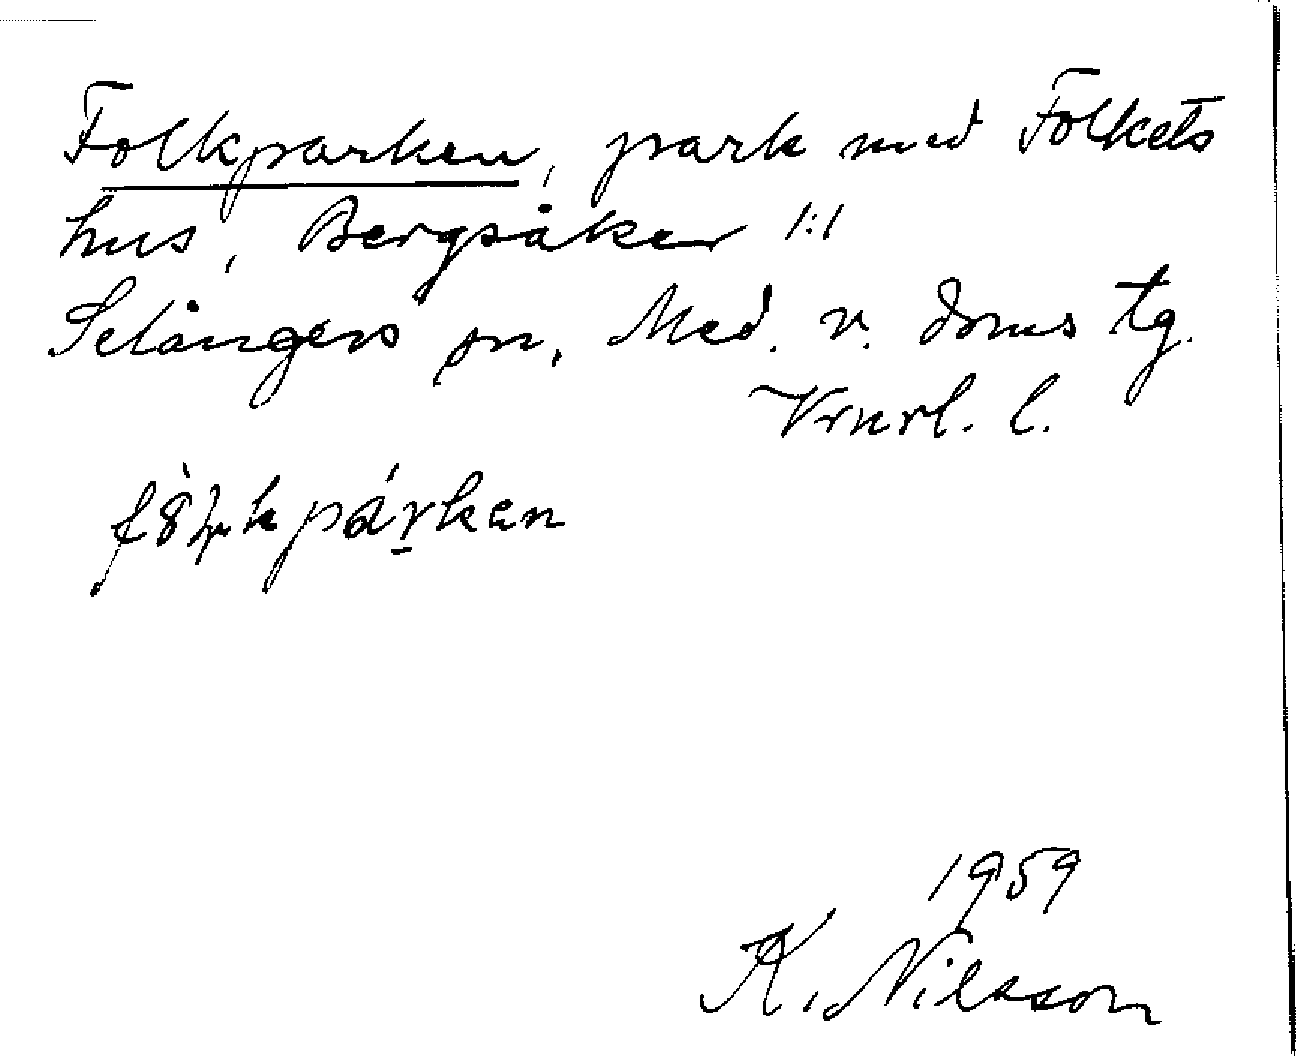 Folkparken, park med Folkets
hus, Bergsåker 1:1
Selångers sn, Med. v. doms tg.
Vrnrl. l.
K. Nilsson
1959